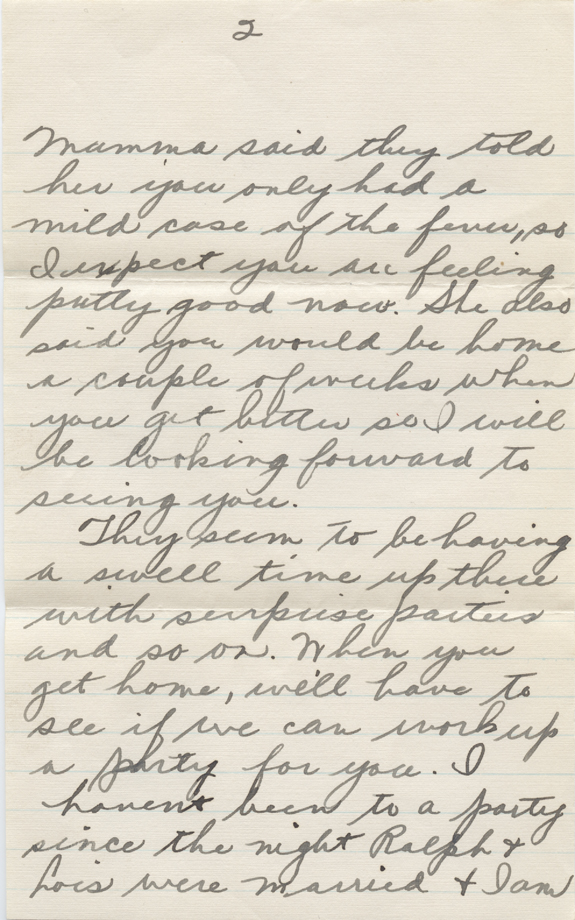 2
Mumma said they told
her you only had a
mild case of the fever, so
I expect you are feeling
pretty good now. She also
said you would be home
a couple of weeks when
you get better so I will
be looking forward to
seeing you.
They seem to be having
a swell time up there
with surprise parties
and so on. When you
get home, we'll have to
see if we can work up
a party for you. I
haven't been to a party
since the night Ralph &
Lois were married & I am